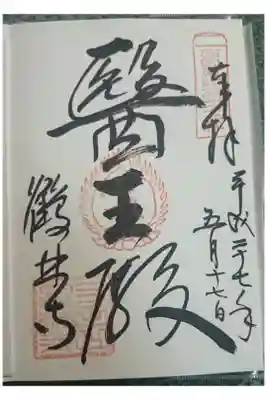 奉拝
平成二七年
五月十七日
醫王殿
鶴林寺